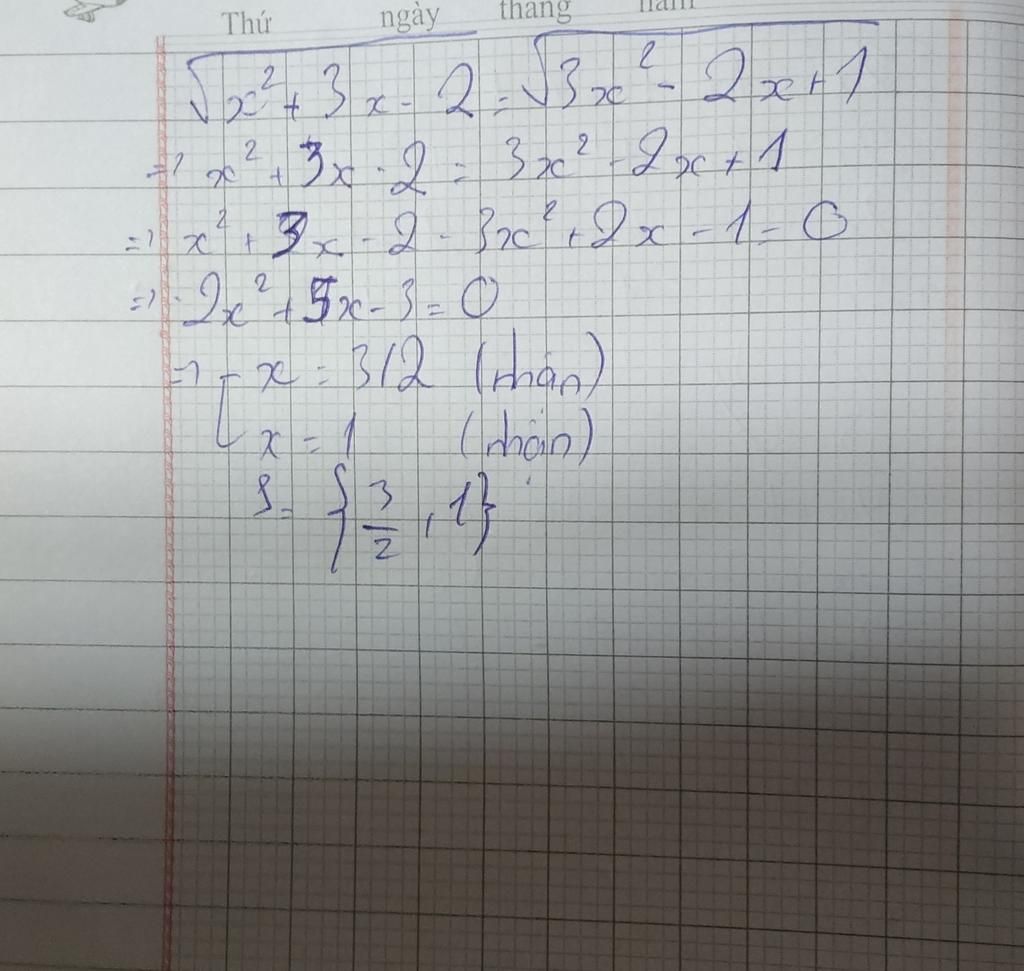 Thứ ngày tháng năm
√(x² + 3x - 2) = √(3x² - 2x + 1)
=> x² + 3x - 2 = 3x² - 2x + 1
=> x² + 3x - 2 - 3x² + 2x - 1 = 0
=> -2x² + 5x - 3 = 0
=> [ x = 3/2 (nhận)
x = 1 (nhận)
S = {3/2, 1}